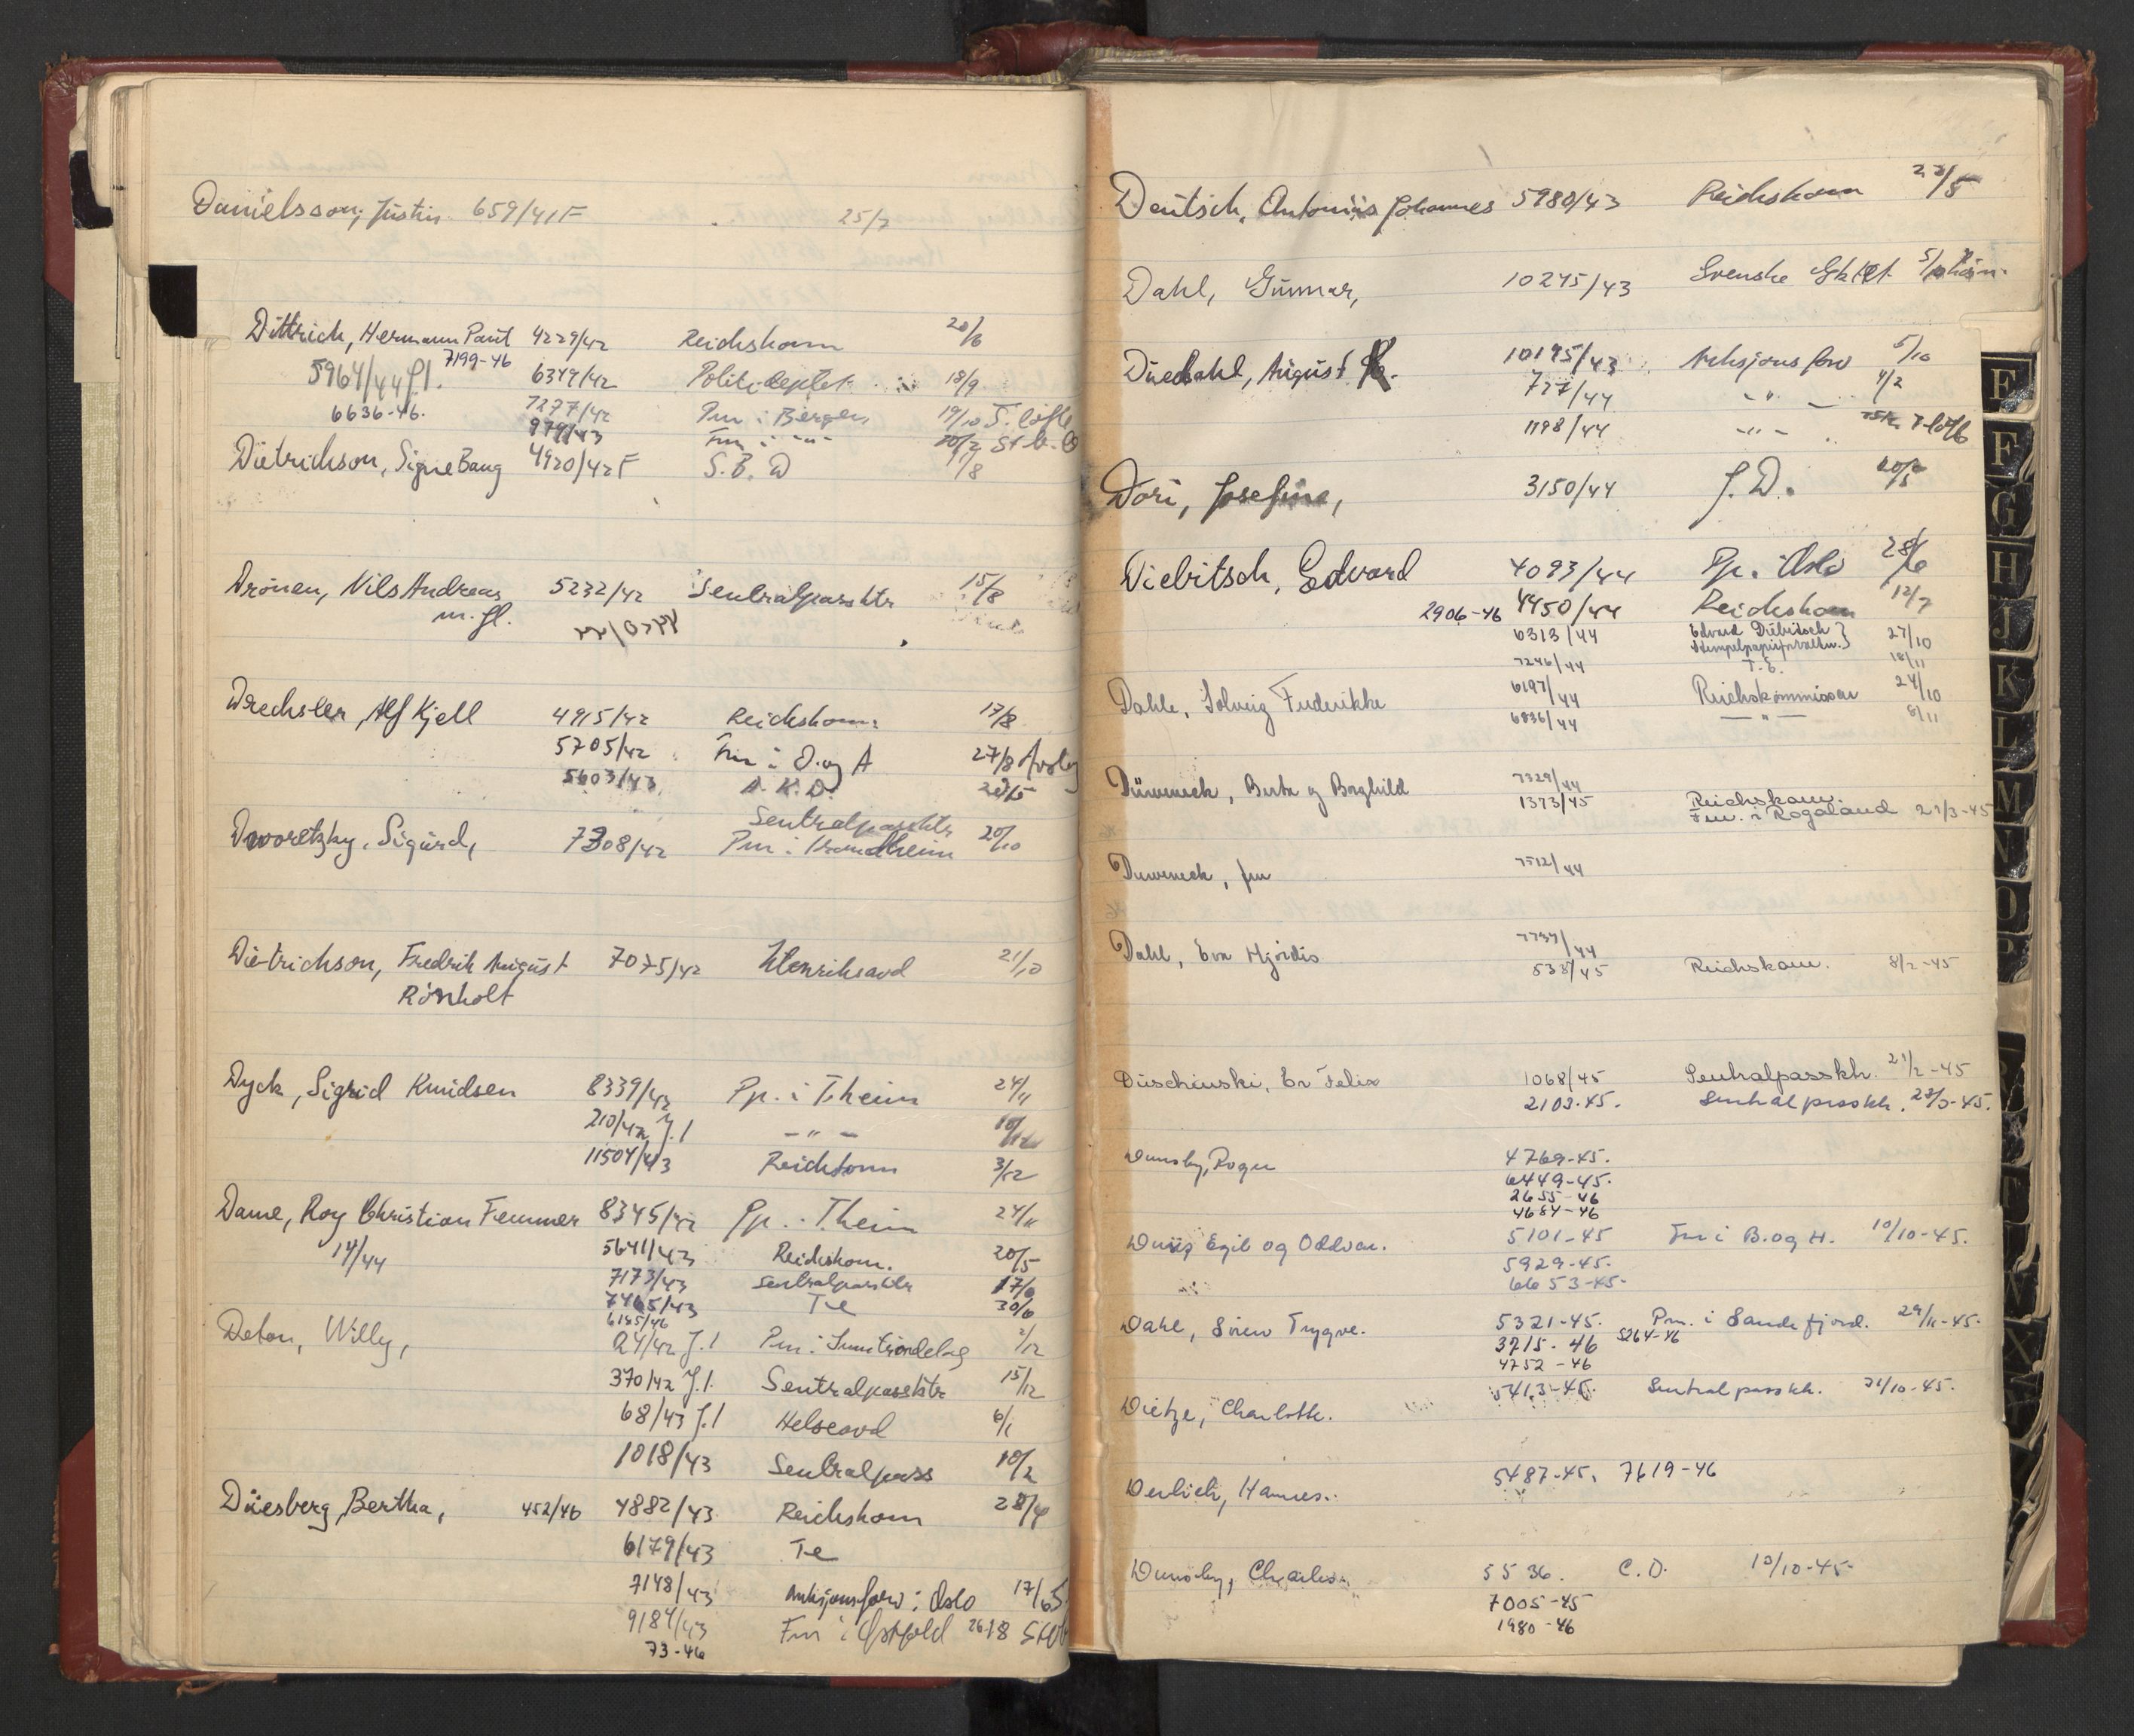 Danielsson, Justin 659/41 F 25/7
Dittrich, Hermann Paul 4229/42 Reichskom 20/6
7199-46
5964/44 J.l. 6349/42 Politideptet 18/9
6636-46. 7277/42 Pm i Bergen 19/10
979/43 Fm i -"- 20/2
Dietrichson, Signe Bang 4920/42 F S.B.D 1/8
Drönen, Nils Andreas 5232/42 Sentralpassktr 15/8
m.fl.
Drechsler, Alf Kjell 4915/42 Reichskom 17/8
5705/42 Fm i O. og A 27/8
5603/43 A.K.D.
Sentralpassktr
Dworetzky, Sigurd, 7308/42 Pm i Trondheim 20/10
Dietrichson, Fredrik August 7075/42 Utenriksavd 21/10
Rönholt
Dyck, Sigrid Knudsen 8339/42 Pp. i Theim 24/11
210/42 J.l -"-
11504/43 Reichkom 3/12
Dame, Roy Christian Femmer 8345/42 Pp. i Theim 24/11
14/44 5641/43 Reichskom. 20/5
7173/43 Sentralpassktr 17/6
7465/43 Te 30/6
6185/46
Deton, Willy, 24/42 J.l Pm i 2/12
370/42 J.l. Sentralpassktr 15/12
68/43 J.l Helseavd 6/1
1018/43 Sentralpass 10/2
Düesberg, Bertha, 452/46 4882/43 Reichskom 28/4
6179/43 Te
7148/43 Auksjonsforv i Oslo 17/6
9184/43 Fm i Östfold 26/8
73-46
Deutsch, Antonius Johannes 5980/43 Reichskom 22/5
Dahl, Gunnar, 10245/43 Svenske
Duedahl, August 10195/43 Auksjonsforv 5/10
727/44 -"- 4/2
1198/44 -"-
Dori, Josefine, 3150/44 J.D. 20/5
Diebitsch, Edvard 4093/44 Pp. i Oslo 28/6
2906-46 4450/44 Reichskom 12/7
6313/44 Edvard Diebitsch 27/10
Stempelpapirforvaltn.
7246/44 T.E. 18/11
Dahle, Solveig Frederikke 6197/44 Reichskommissar 24/10
6836/44 -"- 8/11
7329/44
Düweneck, Berta og Borghild 1373/45 Reichskom.
Fm. i Rogaland 21/3-45
Duweneck, fru 7512/44
Dahl, Eva Hjördis 7737/44
538/45 Reichskom. 8/2-45
Duschinski, Er. Felix 1068/45 Sentralpassktr. 21/2-45
2103-45. Sentralpassktr. 23/3-45.
Dunsby, Roger 4769-45.
6449-45.
2655-46
4684-46
Egil og Oddvar. 5101-45 Fm i B. og H. 10/10-45.
5929-45.
6653-45.
Dahl, Sören Trygve. 5321-45. Pm. i Sandefjord. 29/11-45.
3715-46 5264-46
4752-46
Dietze, Charlotte. 5413-45. Sentralpassktr. 31/10-45.
5487-45. 7619-46
Derlich, Hannes.
Dunsby, Charles. 5536. C.D. 10/10-45.
7005-45
1980-46
E
F
G
H
J
K
L
M
N
O
P